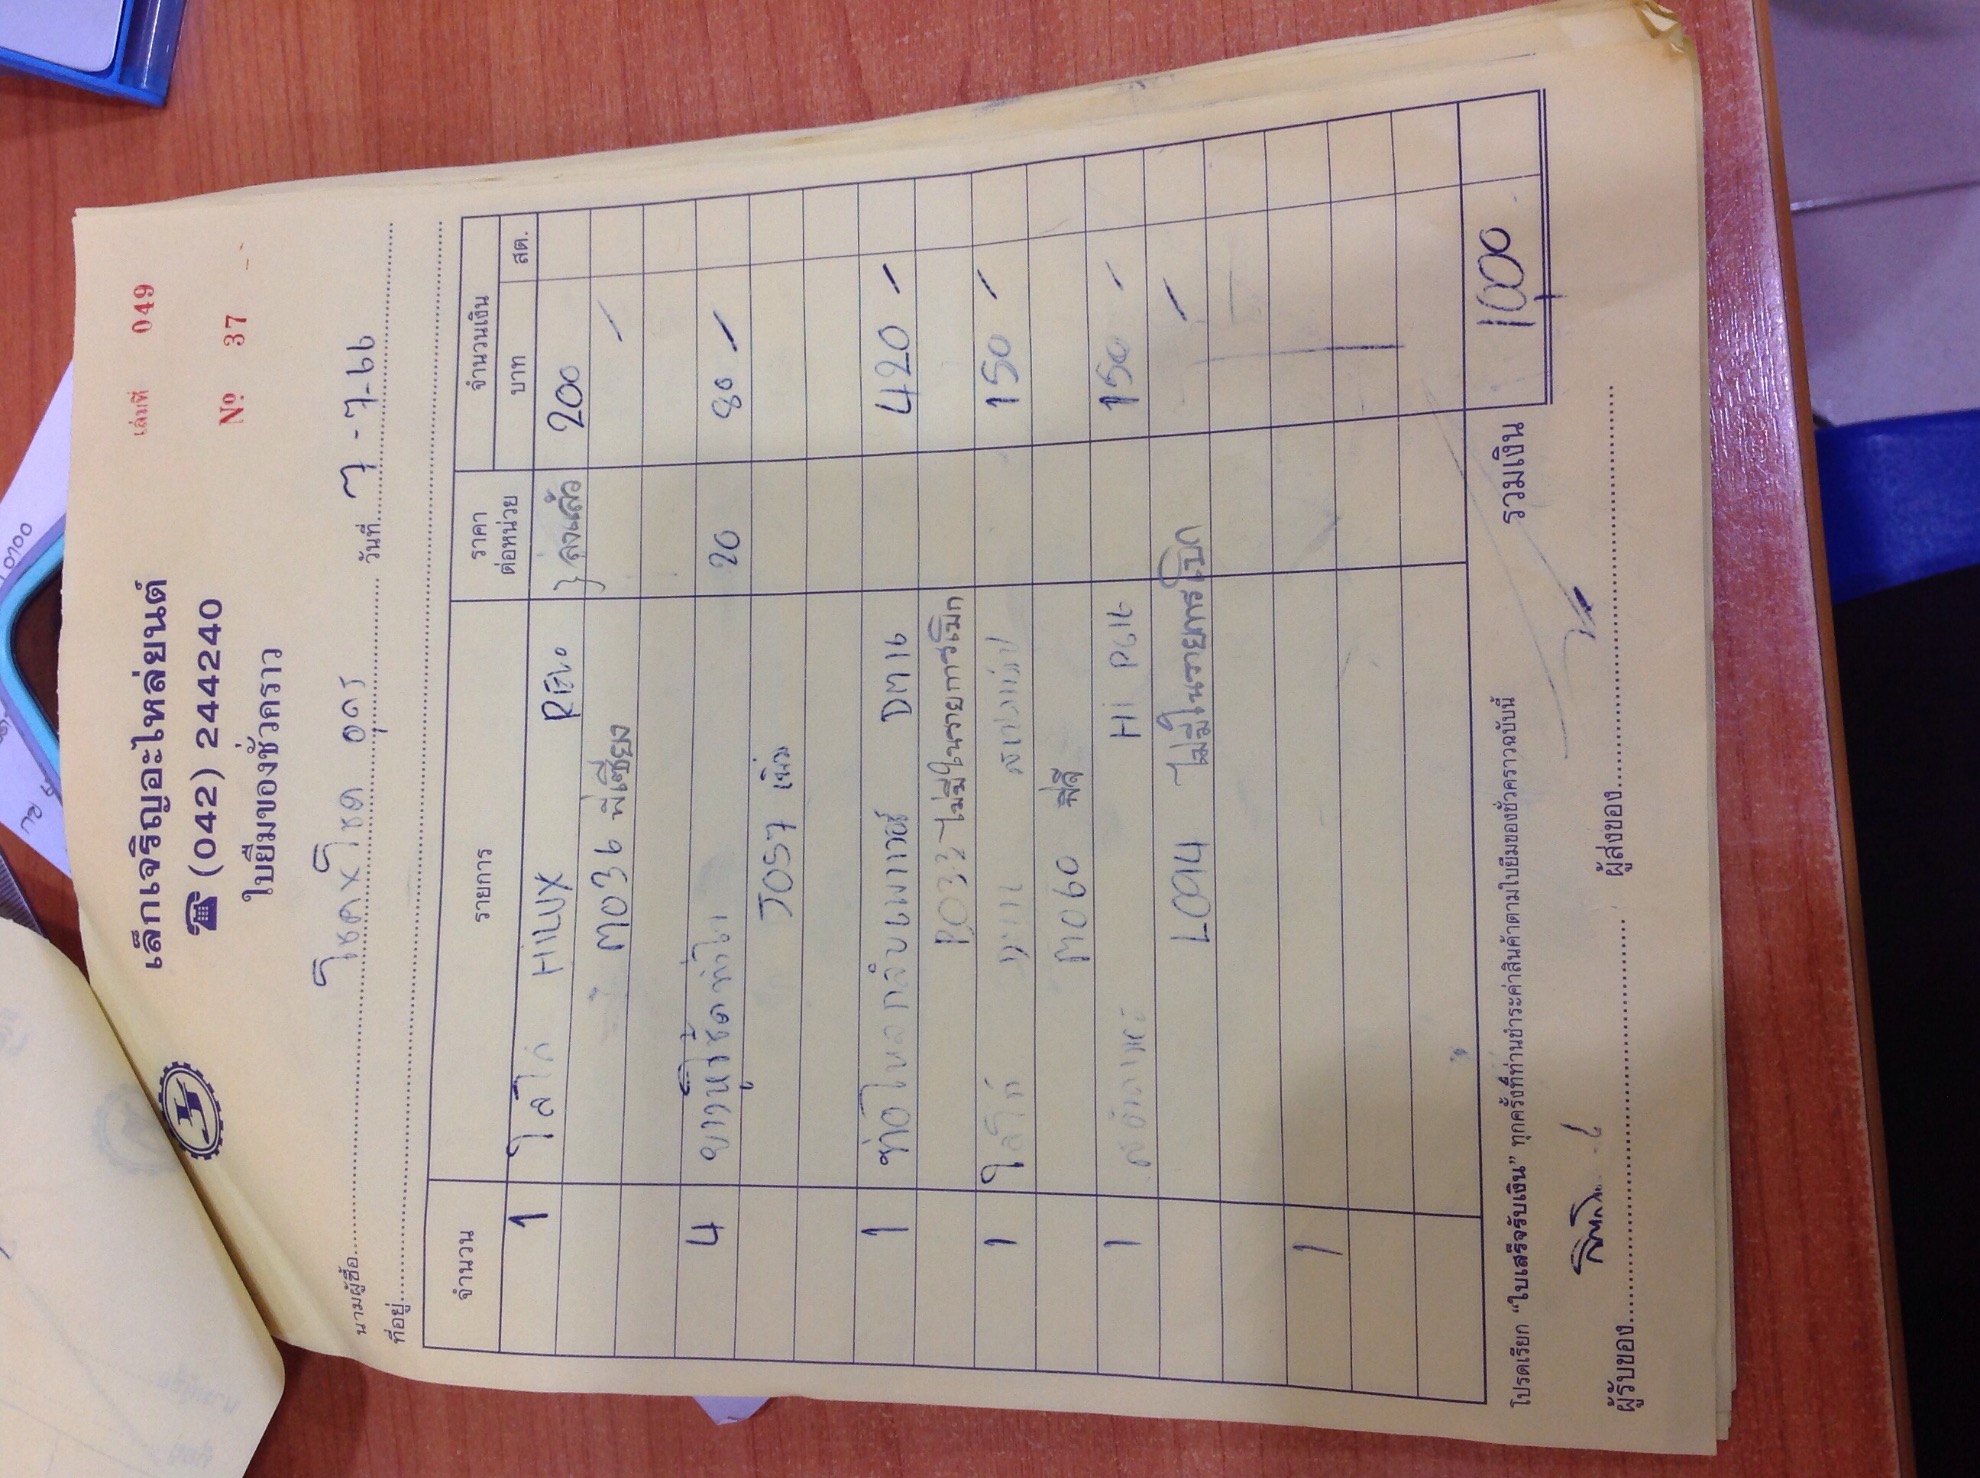 เล่มที่ 049
เล็กเจริญอะไหล่ยนต์
☎ (042) 244240
Nº 37
ใบยืมของชั่วคราว
นามผู้ซื้อ โชคxโชค อุดร วันที่ 7-7-66
ที่อยู่
จำนวน รายการ ราคาต่อหน่วย จำนวนเงิน
บาท สต.
1 HILUX REVO } ลงแล้ว 200
M036 พี่เชียง -
4 20 80 -
J057
1 ท่อไหลกลับเพาเวอร์ DM16 420 -
R033 ไม่มีในรายการเบิก
1 150 -
M060
1 Hi PG16 150 -
L094 ไม่มีในรายการเบิก -
1
รวมเงิน 1000
โปรดเรียก "ใบเสร็จรับเงิน" ทุกครั้งที่ท่านชำระค่าสินค้าตามใบยืมของชั่วคราวฉบับนี้
ผู้รับของ ผู้ส่งของ